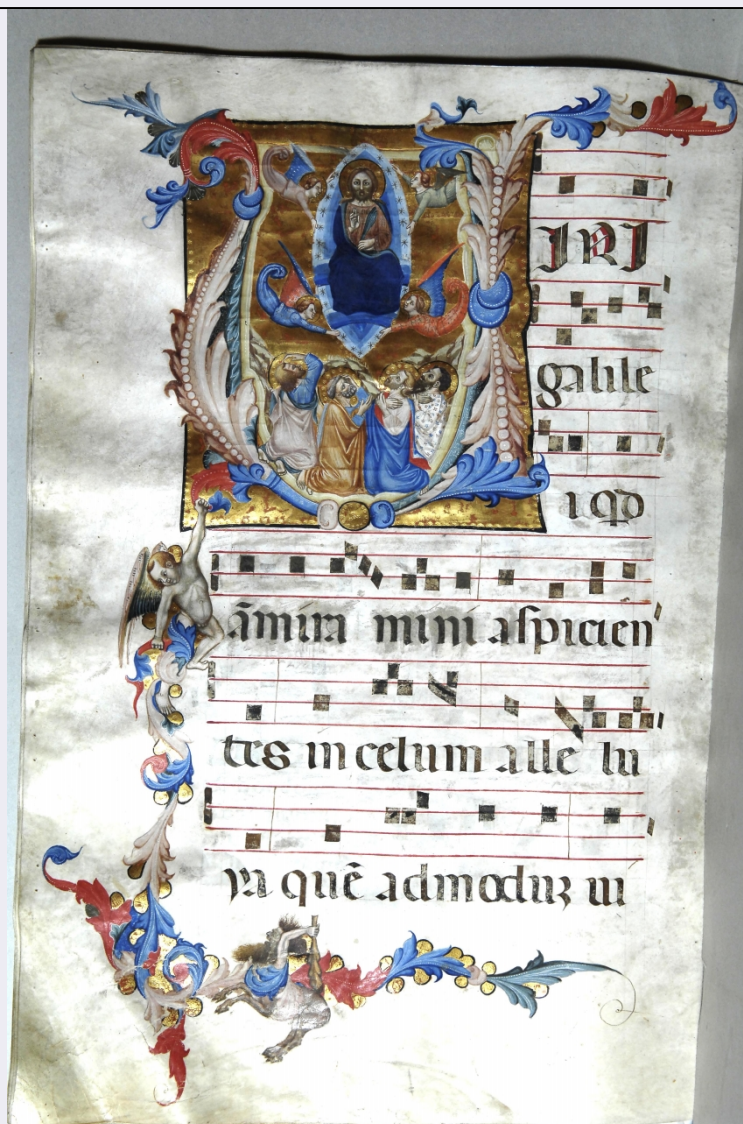 VIRI
galile
i qd
āmira mini aspicien
tes in celum alle lu
ya quē admoduz ui